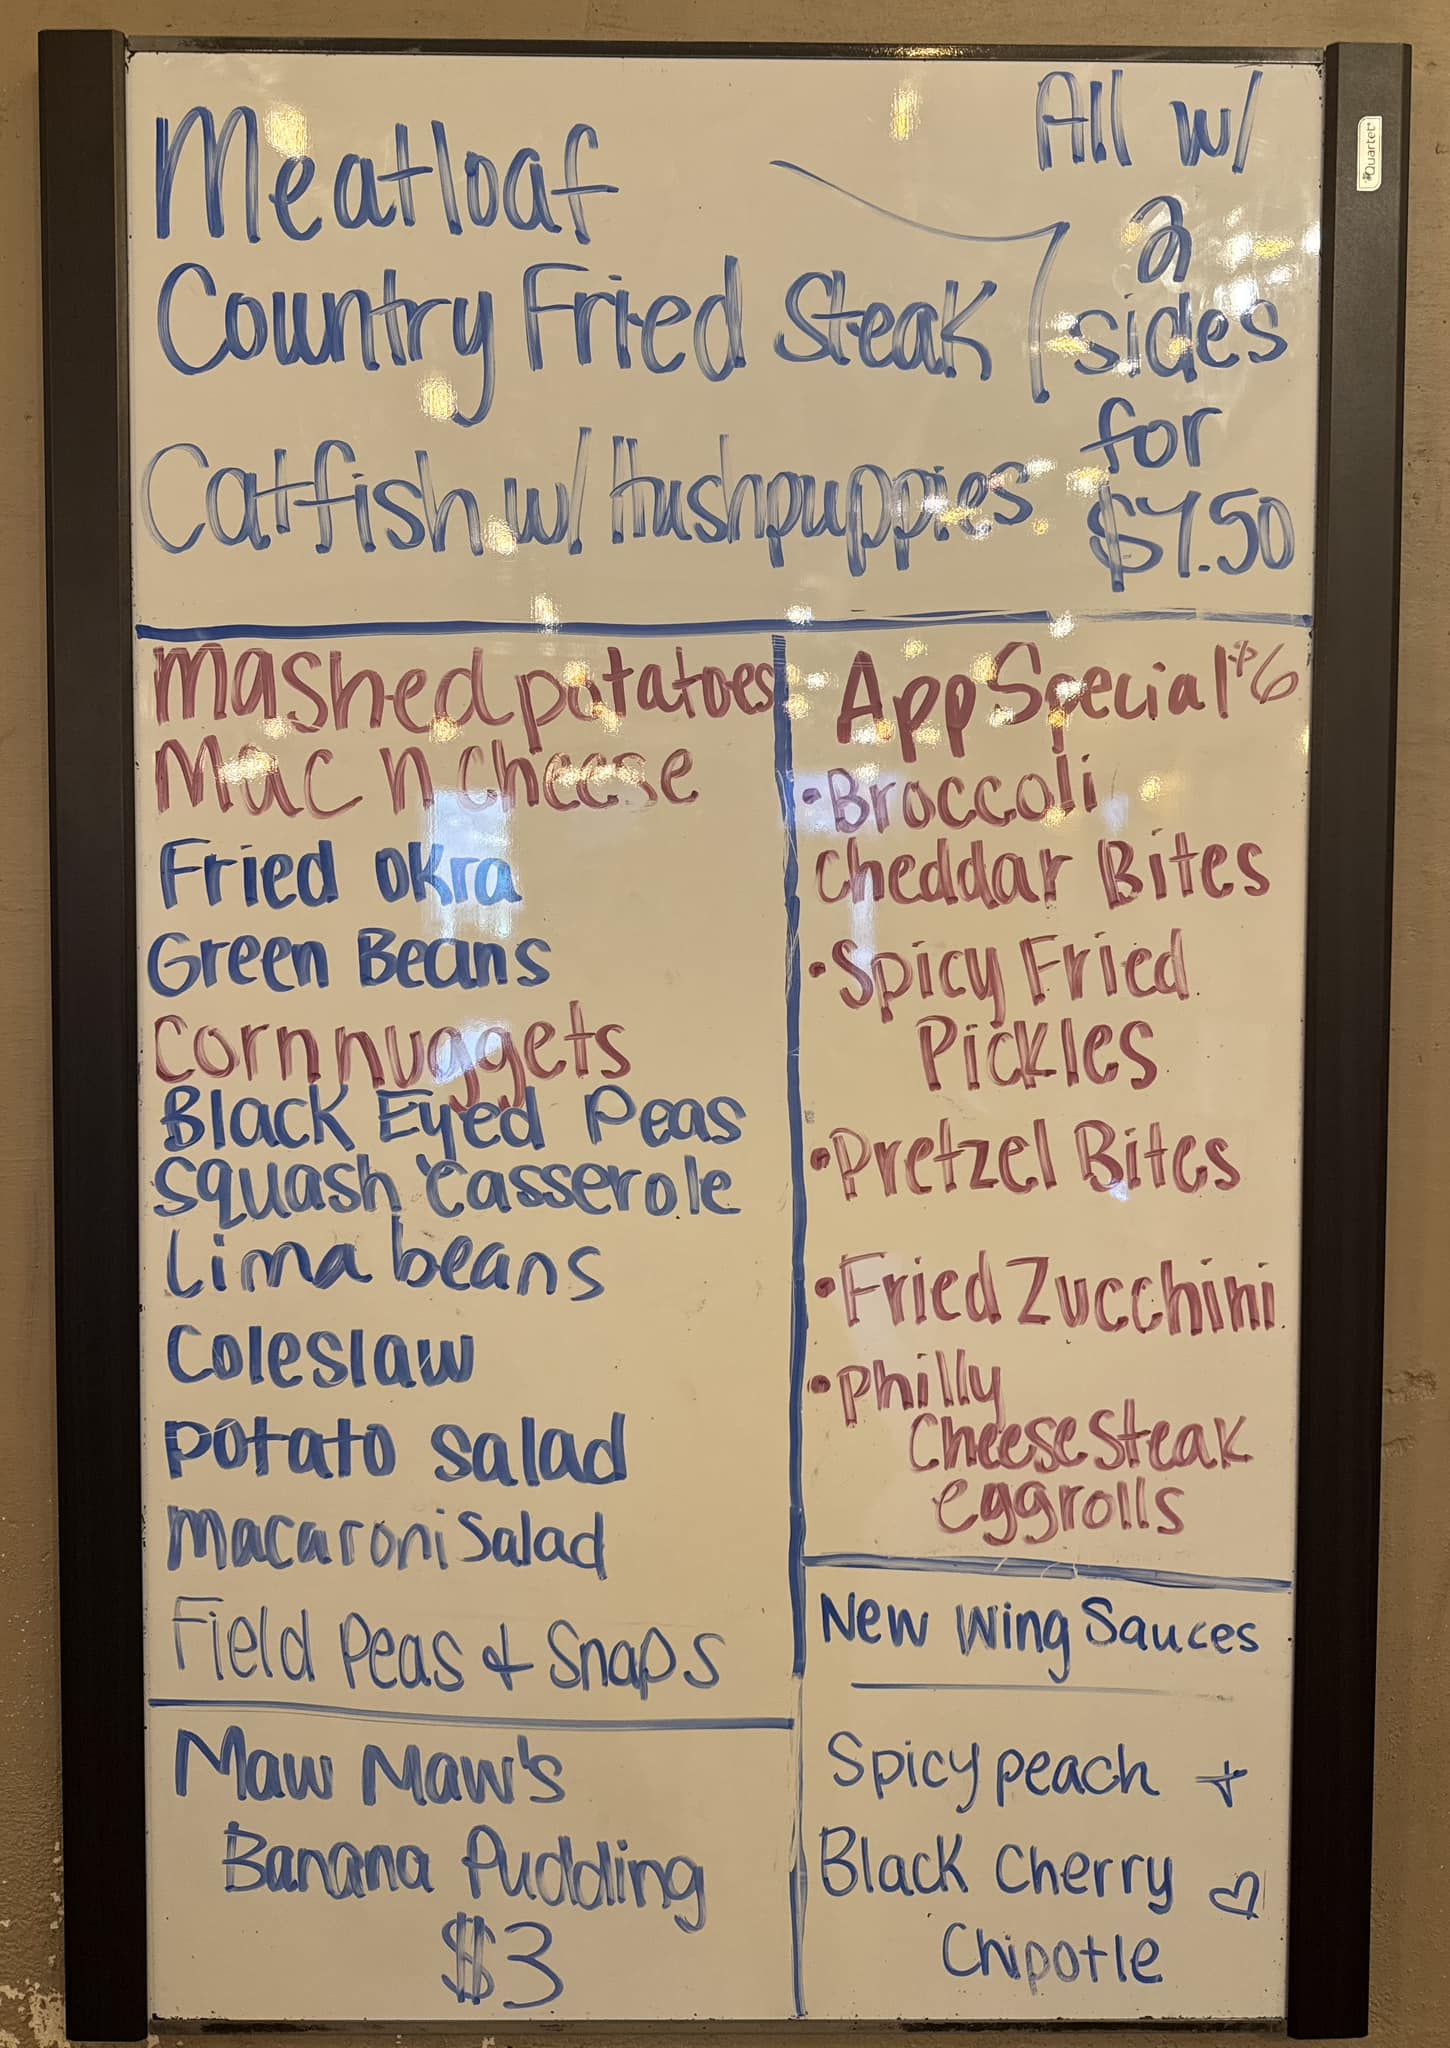 Meatloaf
Country Fried Steak
Catfish w/ Hushpuppies
All w/
2
sides
for
$7.50
Mashed potatoes
Mac n cheese
Fried okra
Green Beans
Corn nuggets
Black Eyed Peas
Squash Casserole
Lima beans
Coleslaw
Potato Salad
Macaroni Salad
Field Peas + Snaps
Maw Maw's
Banana Pudding
$3
App Special $6
• Broccoli
Cheddar Bites
• Spicy Fried
Pickles
• Pretzel Bites
• Fried Zucchini
• Philly
Cheese Steak
eggrolls
New Wing Sauces
Spicy peach +
Black Cherry ♡
Chipotle
Quartet